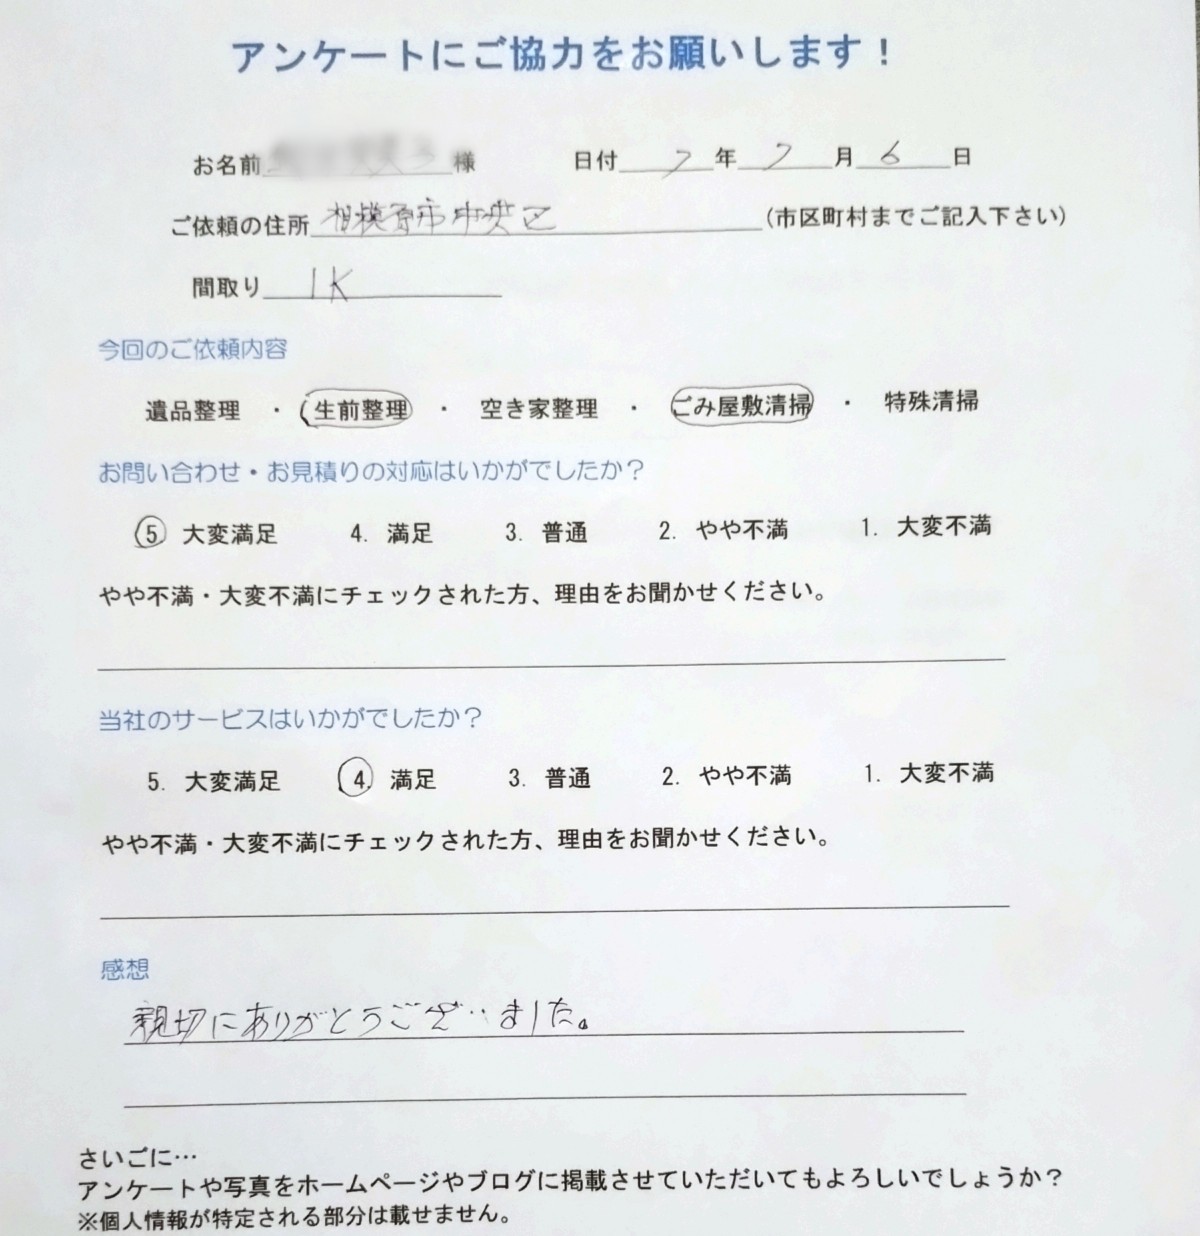 アンケートにご協力をお願いします！
お名前 様 日付 7 年 7 月 6 日
ご依頼の住所 相模原市中央区 (市区町村までご記入下さい)
間取り 1K
今回のご依頼内容
遺品整理 ・ 生前整理 ・ 空き家整理 ・ ごみ屋敷清掃 ・ 特殊清掃
お問い合わせ・お見積りの対応はいかがでしたか？
5 大変満足 4. 満足 3. 普通 2. やや不満 1. 大変不満
やや不満・大変不満にチェックされた方、理由をお聞かせください。
当社のサービスはいかがでしたか？
5. 大変満足 4. 満足 3. 普通 2. やや不満 1. 大変不満
やや不満・大変不満にチェックされた方、理由をお聞かせください。
感想
親切にありがとうございました。
さいごに…
アンケートや写真をホームページやブログに掲載させていただいてもよろしいでしょうか？
※個人情報が特定される部分は載せません。